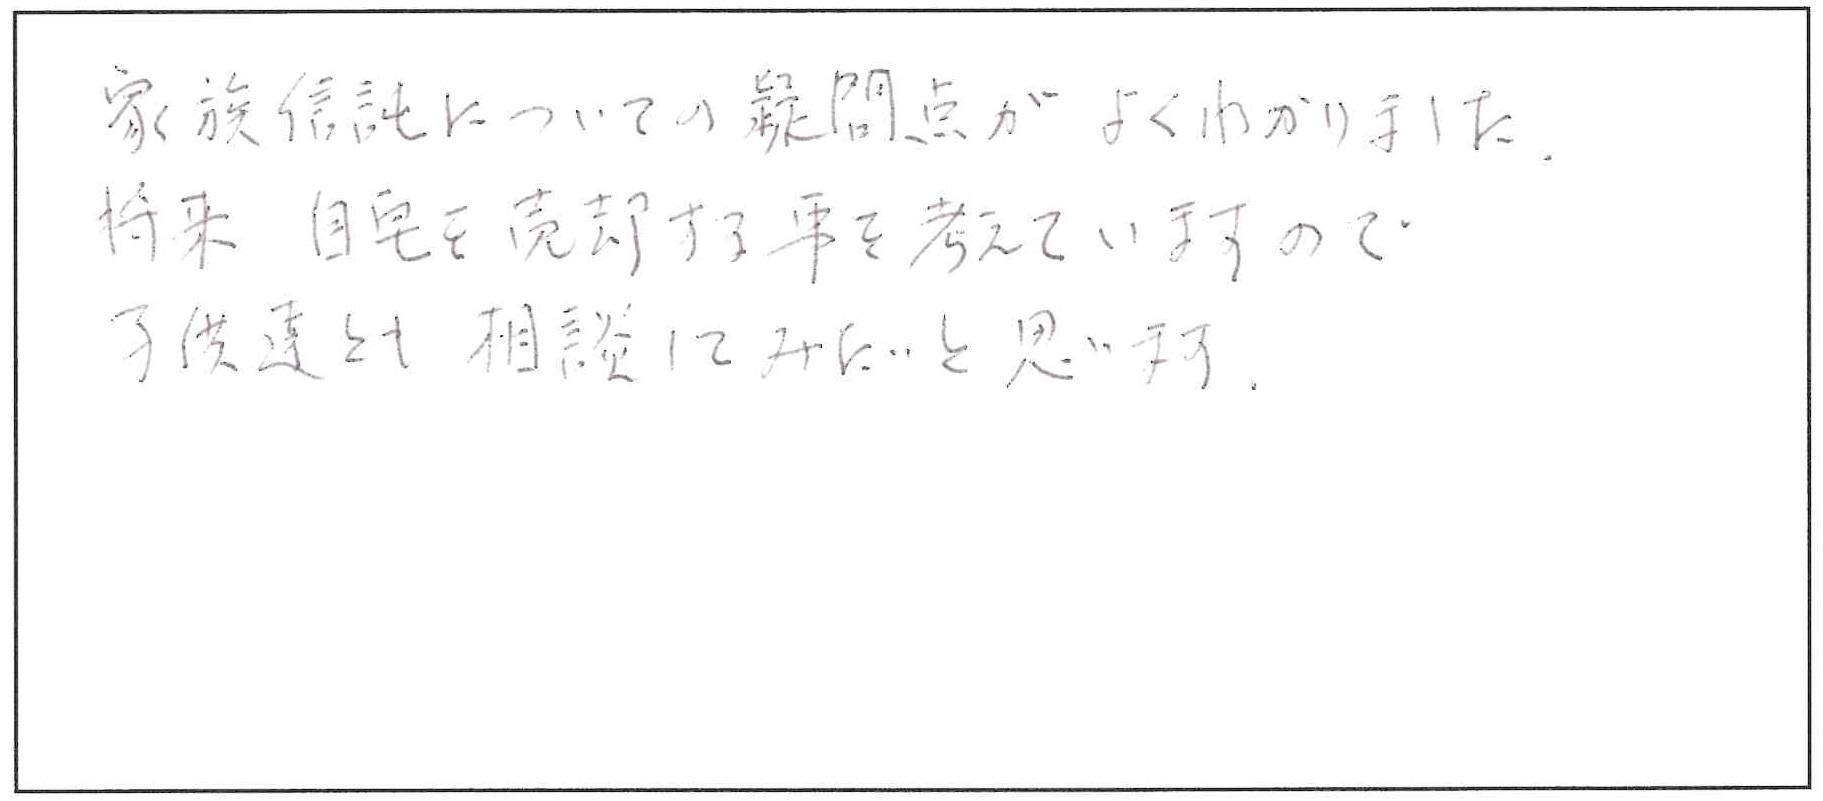 家族信託についての疑問点が よくわかりました.
将来 自宅を売却する事を考えていますので
子供達とも 相談してみたいと思います.